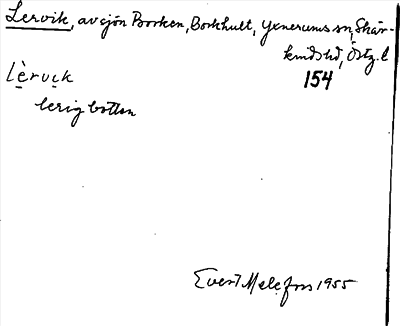 Lervik, av sjön Borken, Borkhult, Yxnerums sn, Skär-
kinds hd, Östg. l
154
Lèrvik
lerig botten
Evert Melefors 1955